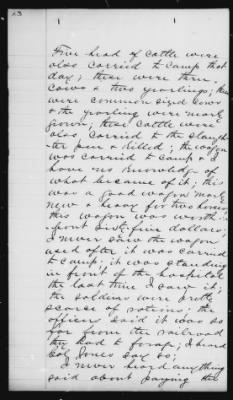 13
Five head of cattle were
also carried to camp that
day; there were three
cows & two yearlings; they
were common sized cows
& the yearling were nearly
grown; these cattle were
also carried to the slaugh-
ter pen & killed; the wagon
was carried to camp & I
have no knowledge of
what became of it; this
was a good wagon nearly
new & heavy for two horses
this wagon was worth
about sixty five dollars;
I never saw the wagon
used after it was carried
to camp; it was standing
in front of the hospital
the last time I saw it;
the soldiers were pretty
scarce of rations; the
officers said it was so
far from the railroad
they had to forage; I heard
Col Jones say so;
I never heard anything
said about paying the